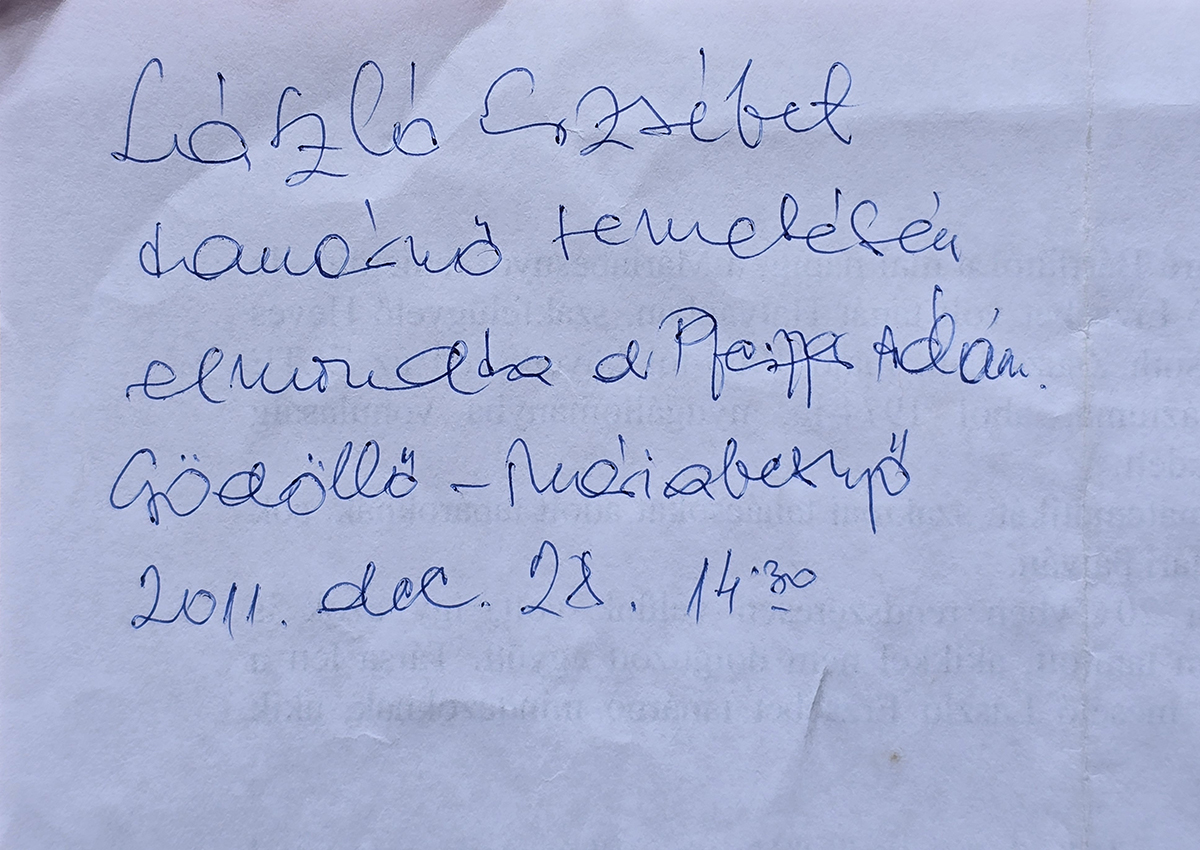 László Erzsébet
tanárnő temetésén
elmondta dr Pfeiffer Ádám.
Gödöllő - Máriabesnyő
2011. dec. 28. 14:30